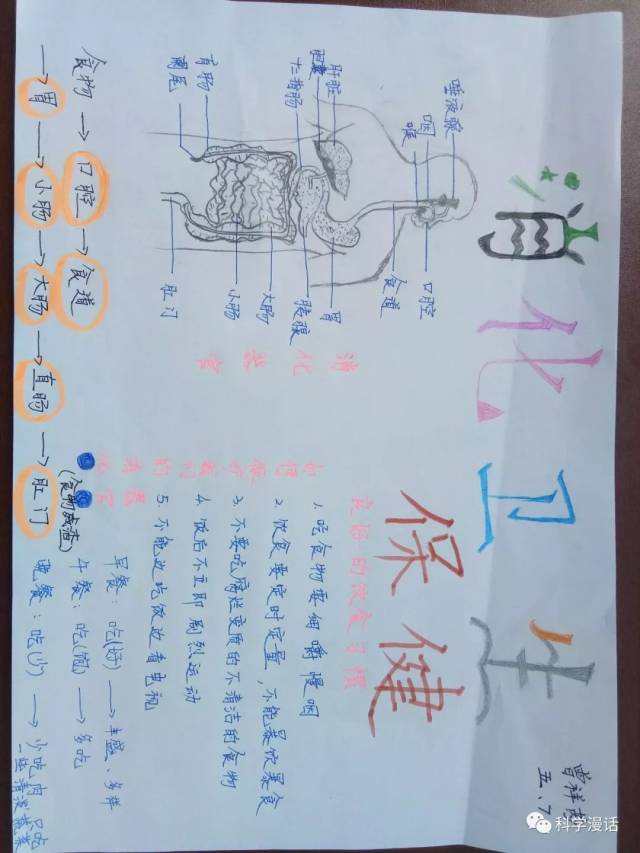 消化卫生
保健
五.7
唾液腺
咽
喉
肝脏
胆囊
十二指肠
盲肠
阑尾
口腔
食道
胃
胰腺
大肠
小肠
肛门
消化器官
良好的饮食习惯
1. 吃食物要细嚼慢咽
2. 饮食要定时定量,不能暴饮暴食
3. 不要吃腐烂变质的不清洁的食物
4. 饭后不立即剧烈运动
5. 不能边吃饭边看电视
如何保护我们的消化器官
食物 → 口腔 → 食道
→ 胃 → 小肠 → 大肠 → 直肠 → 肛门
(食物残渣)
早餐:吃(好) → 丰盛、多样
午餐:吃(饱) → 多吃
晚餐:吃(少) → 少吃肉 只吃
一些清淡蔬菜
科学漫话